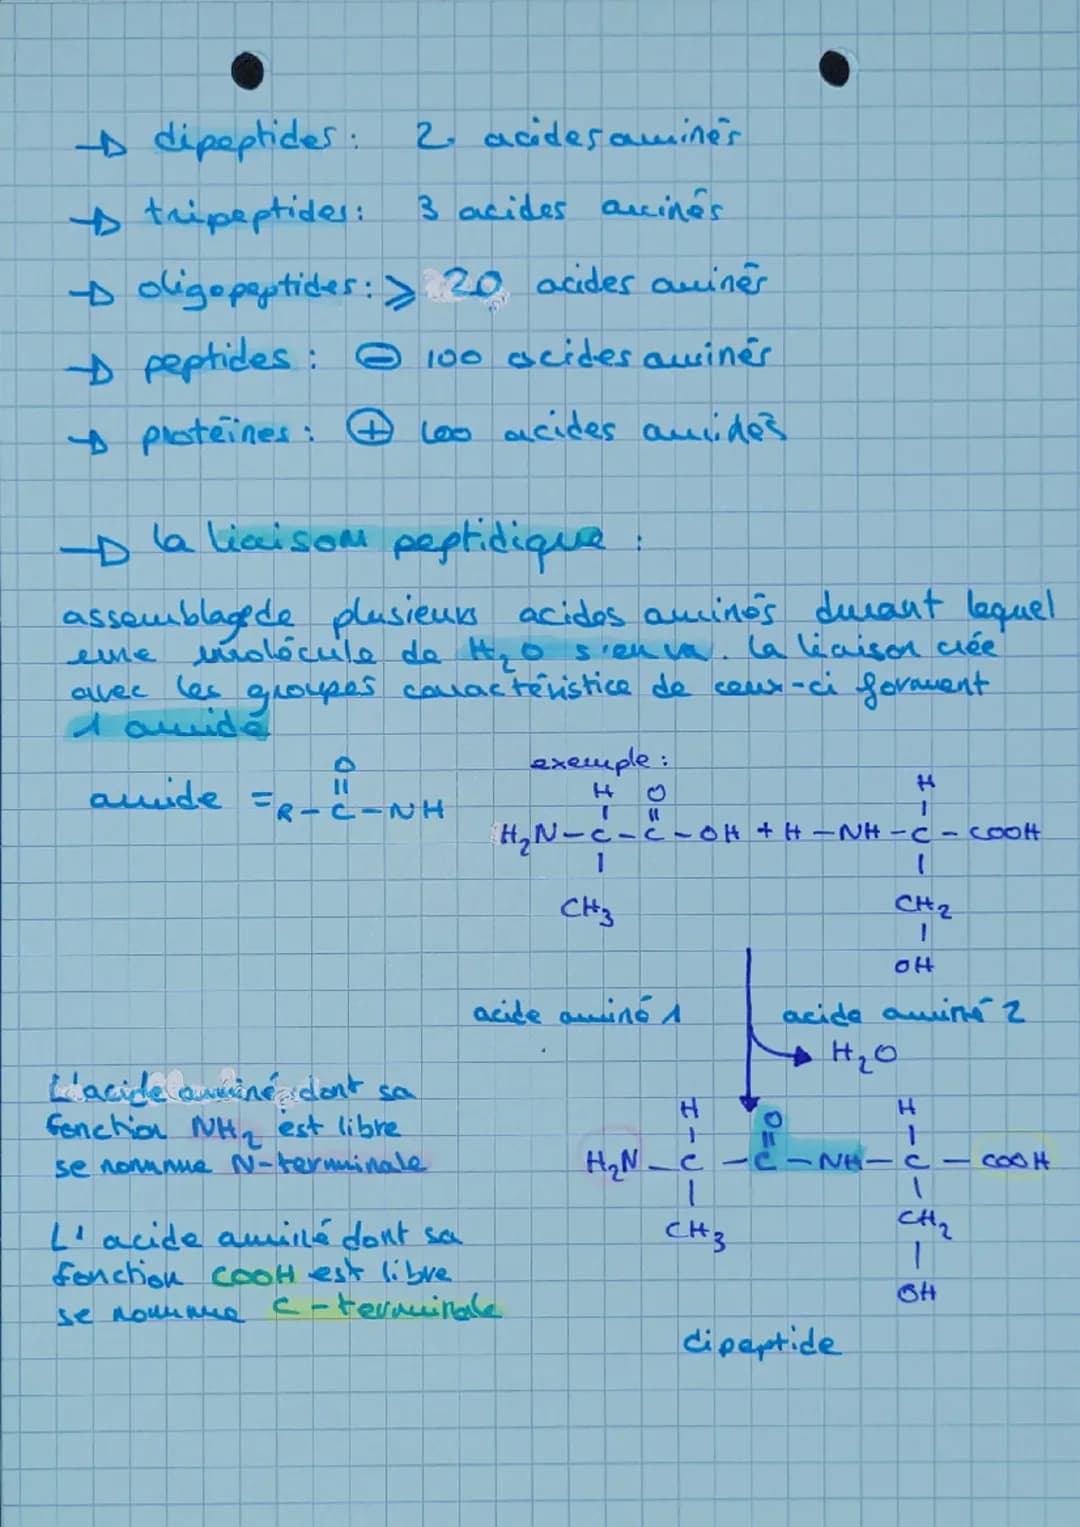 → dipeptides : 2 acides aminés
→ tripeptides : 3 acides aminés
→ oligopeptides : ⩾ 20 acides aminés
→ peptides : ⊖ 100 acides aminés
→ protéines : ⊕ 100 acides amidés
→ la liaison peptidique :
assemblage de plusieurs acides aminés durant lequel
une molécule de H₂O s'en va. La liaison crée
avec les groupes caractéristice de ceux-ci forment
1 amide
exemple :
amide = R-C-NH
O
||
H O
| ||
H₂N-C-C-OH + H-NH-C-COOH
H
|
|
CH₃
|
CH₂
|
OH
acide aminé 1 acide aminé 2
H₂O
L'acide aminé dont sa
fonction NH₂ est libre
se nomme N-terminale
H O H
| || |
H₂N-C-C-NH-C-COOH
| |
CH₃ CH₂
|
OH
L'acide aminé dont sa
fonction COOH est libre
se nomme C-terminale
dipeptide